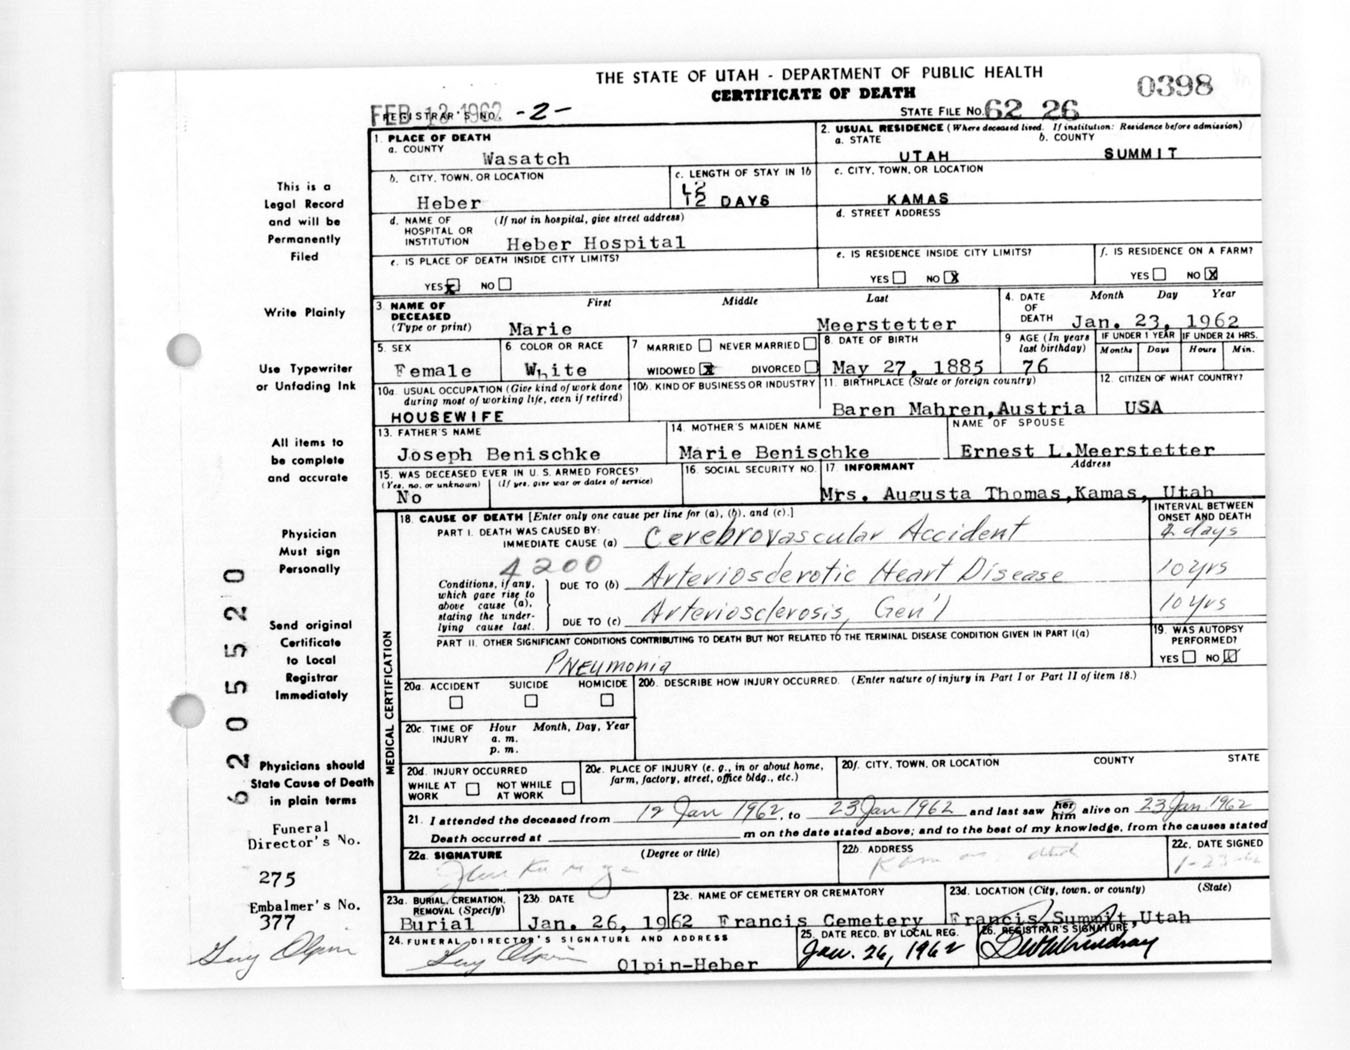 THE STATE OF UTAH - DEPARTMENT OF PUBLIC HEALTH
CERTIFICATE OF DEATH
0398
FEB 13 1962
REGISTRAR'S NO. -2-
STATE FILE NO. 62 26
1. PLACE OF DEATH
a. COUNTY
Wasatch
2. USUAL RESIDENCE (Where deceased lived. If institution: Residence before admission)
a. STATE b. COUNTY
UTAH SUMMIT
b. CITY, TOWN, OR LOCATION
Heber
c. LENGTH OF STAY IN 1b
12
12 DAYS
c. CITY, TOWN, OR LOCATION
KAMAS
d. NAME OF HOSPITAL OR INSTITUTION (If not in hospital, give street address)
Heber Hospital
d. STREET ADDRESS
e. IS PLACE OF DEATH INSIDE CITY LIMITS?
YES X NO
e. IS RESIDENCE INSIDE CITY LIMITS?
YES NO X
f. IS RESIDENCE ON A FARM?
YES NO X
3 NAME OF DECEASED (Type or print)
First Middle Last
Marie Meerstetter
4. DATE OF DEATH Month Day Year
Jan. 23, 1962
5. SEX
Female
6. COLOR OR RACE
White
7 MARRIED NEVER MARRIED
WIDOWED X DIVORCED
8. DATE OF BIRTH
May 27, 1885
9 AGE (In years last birthday)
76
IF UNDER 1 YEAR IF UNDER 24 HRS.
Months Days Hours Min.
10a. USUAL OCCUPATION (Give kind of work done during most of working life, even if retired)
HOUSEWIFE
10b. KIND OF BUSINESS OR INDUSTRY
11. BIRTHPLACE (State or foreign country)
Baren Mahren,Austria
12. CITIZEN OF WHAT COUNTRY?
USA
13. FATHER'S NAME
Joseph Benischke
14. MOTHER'S MAIDEN NAME
Marie Benischke
NAME OF SPOUSE
Ernest L.Meerstetter
15. WAS DECEASED EVER IN U. S. ARMED FORCES?
(Yes, no, or unknown) (If yes, give war or dates of service)
No
16. SOCIAL SECURITY NO.
17. INFORMANT Address
Mrs. Augusta Thomas,Kamas, Utah
MEDICAL CERTIFICATION
18. CAUSE OF DEATH [Enter only one cause per line for (a), (b), and (c).]
INTERVAL BETWEEN ONSET AND DEATH
PART I. DEATH WAS CAUSED BY:
IMMEDIATE CAUSE (a) Cerebrovascular Accident
days
4200
Conditions, if any, which gave rise to above cause (a), stating the underlying cause last.
DUE TO (b) Arteriosclerotic Heart Disease 10 yrs
DUE TO (c) Arteriosclerosis, Gen'l 10 yrs
PART II. OTHER SIGNIFICANT CONDITIONS CONTRIBUTING TO DEATH BUT NOT RELATED TO THE TERMINAL DISEASE CONDITION GIVEN IN PART I(a)
Pneumonia
19. WAS AUTOPSY PERFORMED?
YES NO X
20a. ACCIDENT SUICIDE HOMICIDE
20b. DESCRIBE HOW INJURY OCCURRED. (Enter nature of injury in Part I or Part II of item 18.)
20c. TIME OF INJURY Hour Month, Day, Year
a. m.
p. m.
20d. INJURY OCCURRED
WHILE AT WORK NOT WHILE AT WORK
20e. PLACE OF INJURY (e. g., in or about home, farm, factory, street, office bldg., etc.)
20f. CITY, TOWN, OR LOCATION COUNTY STATE
21. I attended the deceased from 12 Jan 1962, to 23 Jan 1962 and last saw her him alive on 23 Jan 1962
Death occurred at m on the date stated above; and to the best of my knowledge, from the causes stated
22a. SIGNATURE (Degree or title)
22b. ADDRESS
22c. DATE SIGNED
23a. BURIAL, CREMATION, REMOVAL (Specify)
Burial
23b. DATE
Jan. 26, 1962
23c. NAME OF CEMETERY OR CREMATORY
Francis Cemetery
23d. LOCATION (City, town, or county) (State)
Francis, Summit, Utah
24. FUNERAL DIRECTOR'S SIGNATURE AND ADDRESS
Olpin
Olpin-Heber
25. DATE RECD. BY LOCAL REG.
Jan. 26, 1962
26. REGISTRAR'S SIGNATURE
This is a
Legal Record
and will be
Permanently
Filed
Write Plainly
Use Typewriter
or Unfading Ink
All items to
be complete
and accurate
Physician
Must sign
Personally
Send original
Certificate
to Local
Registrar
Immediately
Physicians should
State Cause of Death
in plain terms
Funeral
Director's No.
275
Embalmer's No.
377
Olpin
6205520